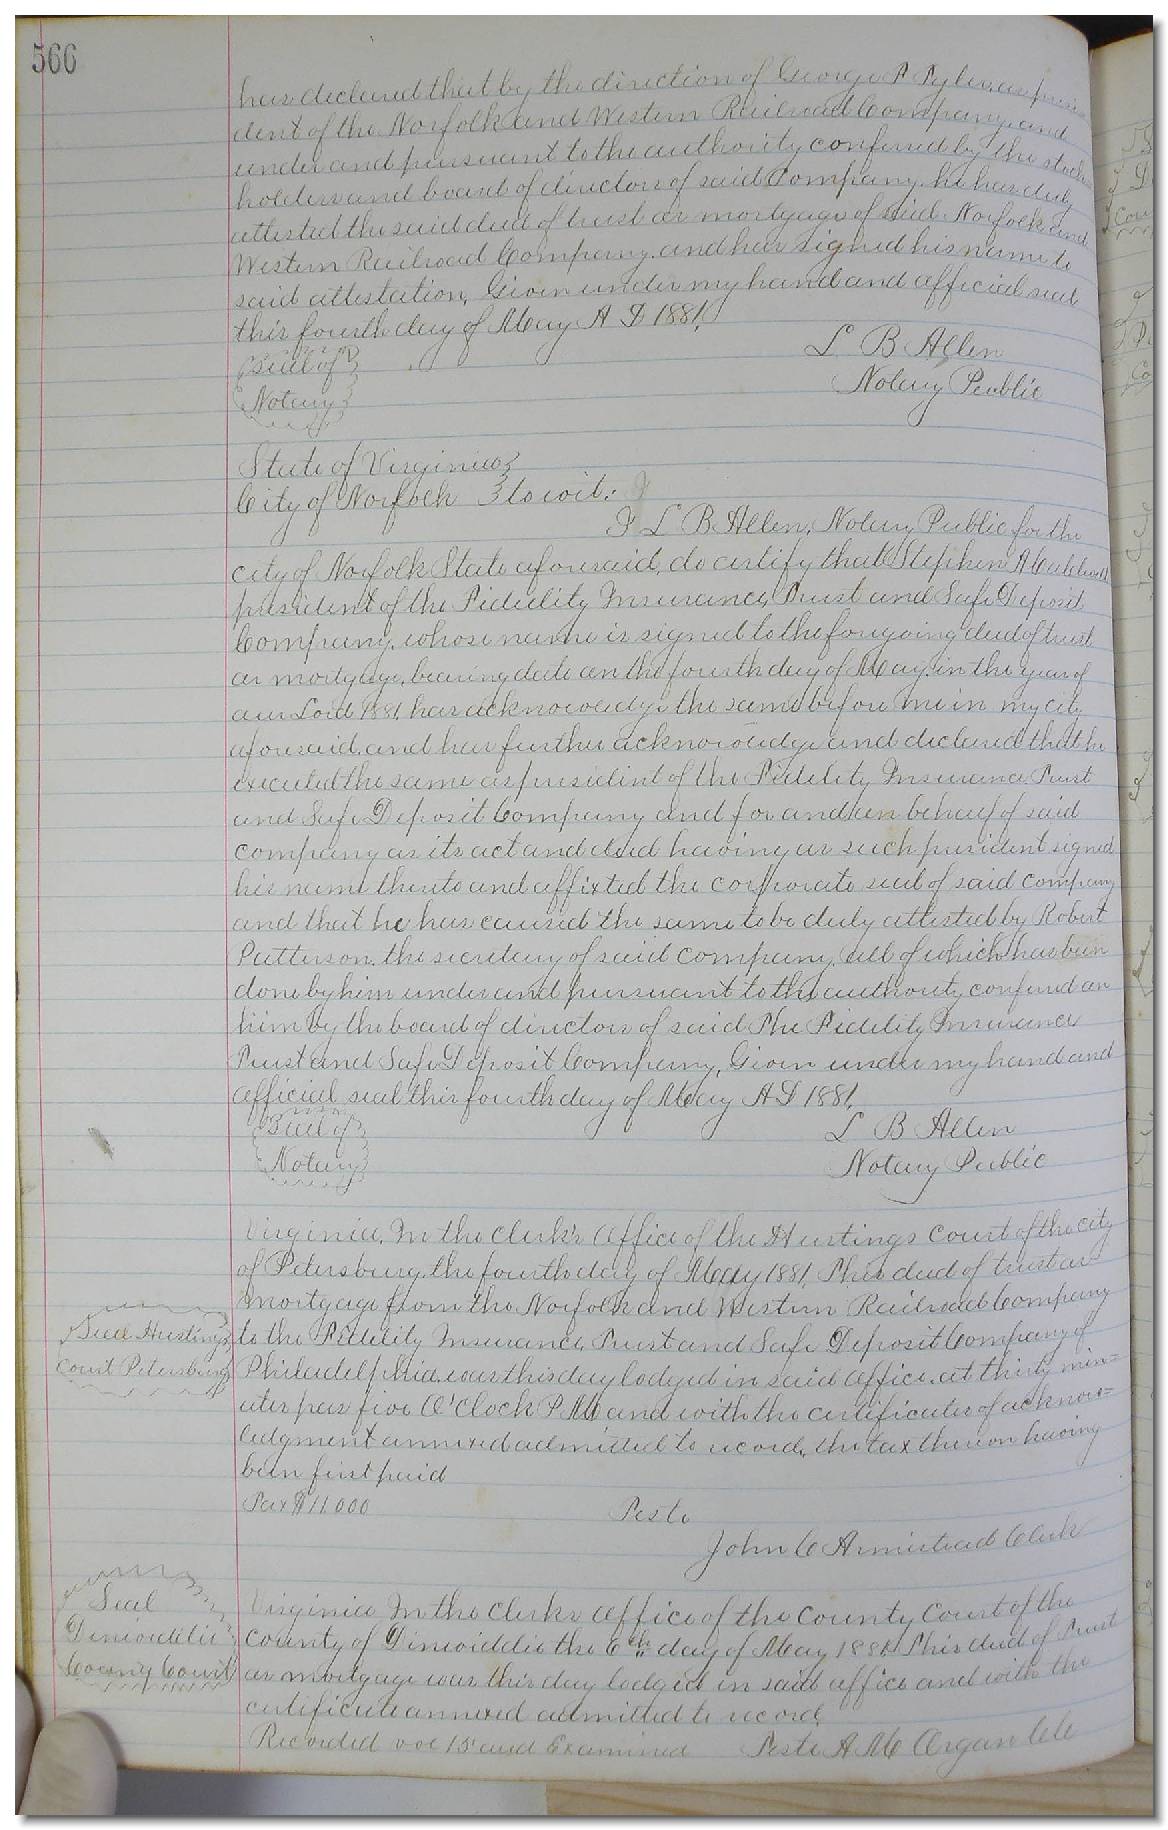 566
has declared that by the direction of George F Tyler, as presi
dent of the Norfolk and Western Railroad Company, and
under and pursuant to the authority conferred by the stock
holders and board of directors of said Company, he has duly
attested the said deed of trust or mortgage of said Norfolk and
Western Railroad Company, and has signed his name to
said attestation, Given under my hand and official seal
this fourth day of May A D 1881,
Seal of
Notary
L B Allen
Notary Public
State of Virginia
City of Norfolk to wit:
I L B Allen, Notary Public for the
city of Norfolk State aforesaid, do certify that Stephen A Caldwell
president of the Fidelity Insurance, Trust and Safe Deposit
Company, whose name is signed to the foregoing deed of trust
or mortgage, bearing date on the fourth day of May, in the year of
our Lord 1881, has acknowledge the same before me in my city
aforesaid, and has further acknowledge and declared that he
executed the same as president of the Fidelity Insurance Trust
and Safe Deposit Company and for and on behalf of said
company as its act and deed having as such president signed
his name thereto and affixted the corporate seal of said company
and that he has caused the same to be duly attested by Robert
Patterson, the secretary of said company, all of which has been
done by him under and pursuant to the authority confered on
him by the board of directors of said The Fidelity Insurance
Trust and Safe Deposit Company, Given under my hand and
official seal this fourth day of May A D 1881,
Seal of
Notary
L B Allen
Notary Public
Virginia, In the Clerk's Office of the Hustings Court of the city
of Petersburg, the fourth day of May 1881, This deed of trust or
mortgage from the Norfolk and Western Railroad Company
Seal Hustings
Court Petersburg
to the Fidelity Insurance, Trust and Safe Deposit Company of
Philadelphia was this day lodged in said office, at thirty min=
utes pas five O'Clock P M and with the certificates of acknow=
ledgment annexed admitted to record, the tax thereon having
been first paid
Tax $11.000
Teste
John C Armistead Clerk
Seal
Dinwiddie
County Court
Virginia In the Clerks office of the County Court of the
County of Dinwiddie the 6th day of May 1881 This deed of Trust
or mortgage was this day lodged in said office and with the
certificate annexed admitted to record,
Recorded vol 15 and Examined Teste A M Orgain Clk